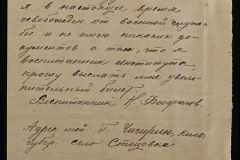 я в настоящее время
освобожден от военной служ-
бы и не имею никаких до-
кументов о том, что я
воспитанник института
прошу выслать мне уволь-
нительный билет.
Воспитанник Н.
Адрес мой г. Чигирин, Киев.
губер. село Стецовка.